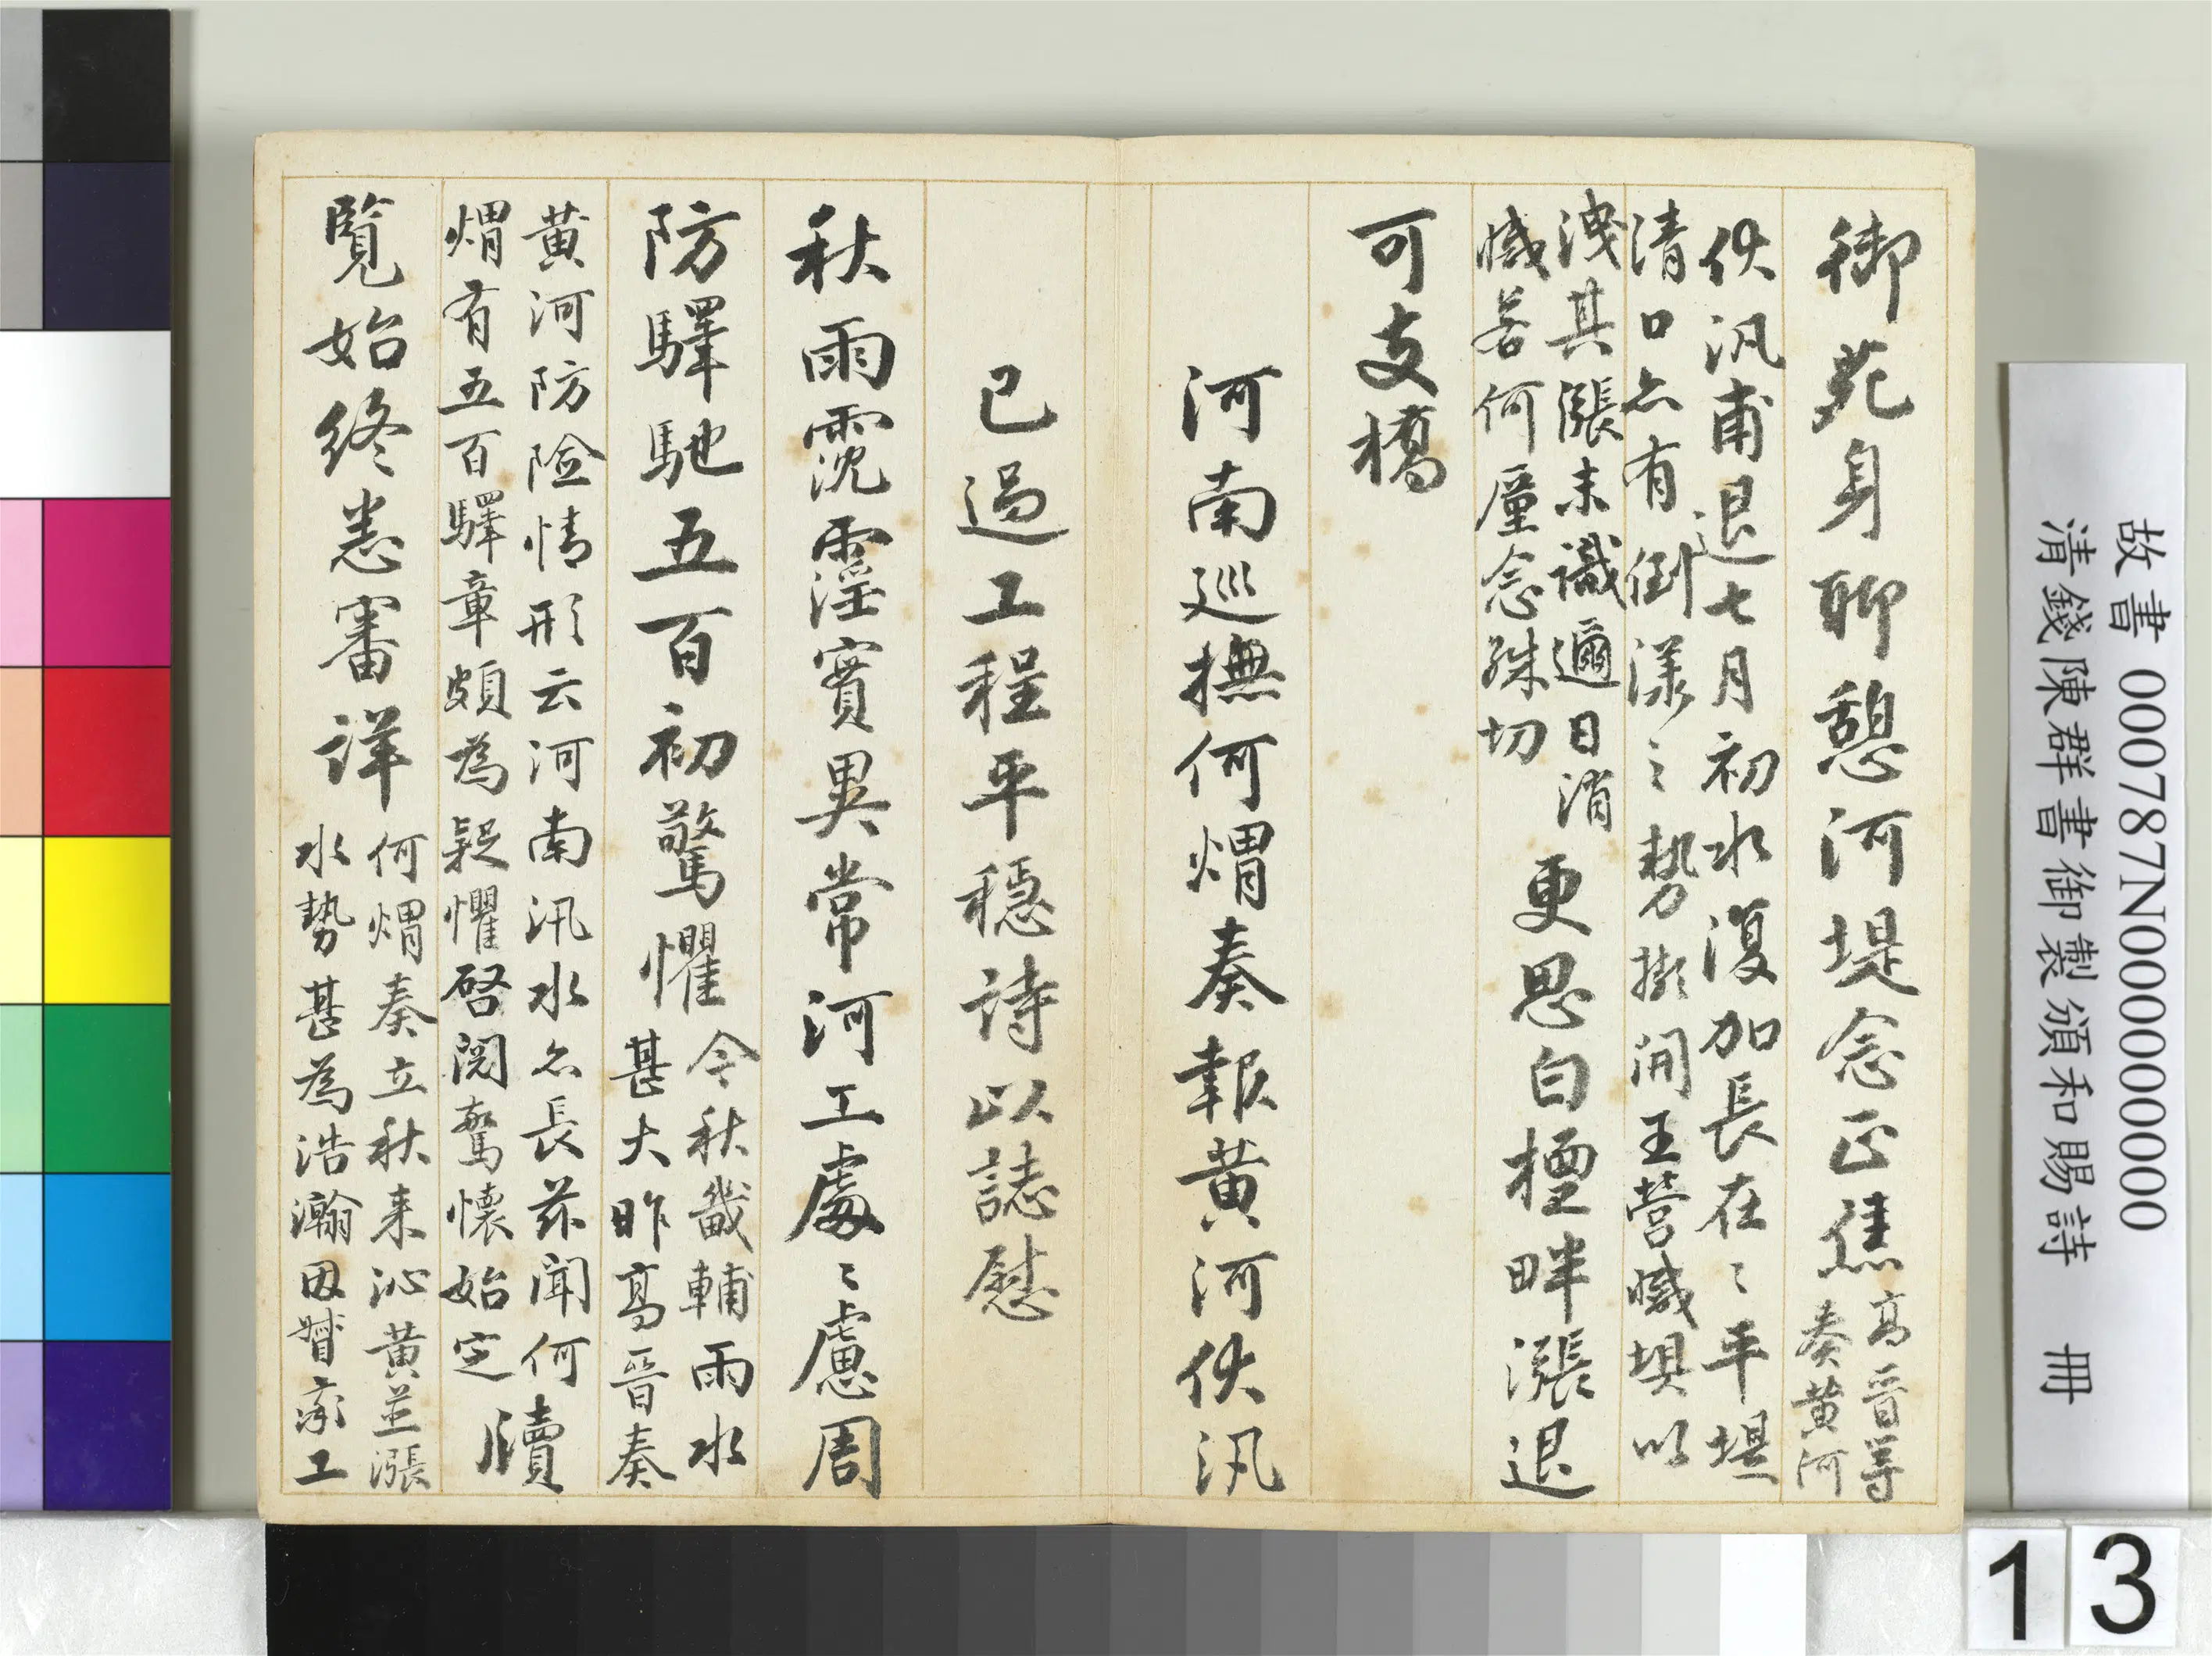 御苑身聊憩河堤念正焦
高晉等
奏黃河
伏汛甫退七月初水復加長在〻平堤
清口亦有倒漾之勢擬開王營減壩以
洩其漲未識邇日消
減若何厪念殊切
更思白櫃畔漲退
可支橋
河南巡撫何煟奏報黃河伏汛
已過工程平穩詩以誌慰
秋雨霃霪實異常河工處〻慮周
防驛馳五百初驚懼
今秋畿輔雨水
甚大昨高晉奏
黃河防險情形云河南汛水亦長茲聞何
煟有五百驛章頗為疑懼啓閱驚懷始定
牘
覽始終悉審詳
何煟奏立秋來沁黃並漲
水勢甚為浩瀚因督率工
故書 000787N000000000
清錢陳群書御製頒和賜詩 冊
13